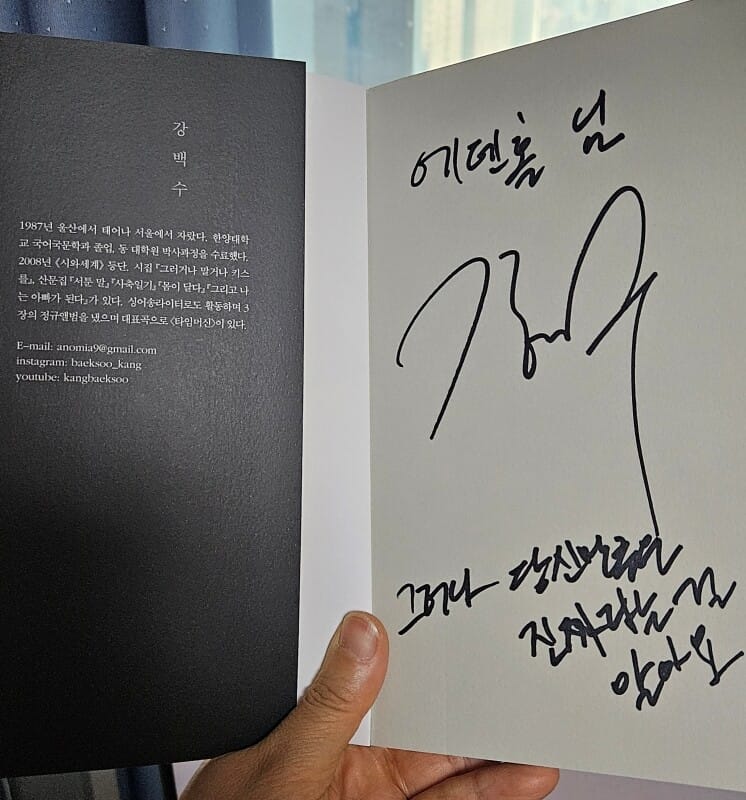 강
백
수
1987년 울산에서 태어나 서울에서 자랐다. 한양대학
교 국어국문학과 졸업, 동 대학원 박사과정을 수료했다.
2008년 《시와세계》 등단. 시집 『그러거나 말거나 키스
를』, 산문집 『서툰 말』『사축일기』『몸이 달다』『그리고 나
는 아빠가 된다』가 있다. 싱어송라이터로도 활동하며 3
장의 정규앨범을 냈으며 대표곡으로 〈타임머신〉이 있다.
E-mail: anomia9@gmail.com
instagram: baeksoo_kang
youtube: kangbaeksoo
에덴홀 님
그러나 당신만큼은
진짜라는 걸
알아요